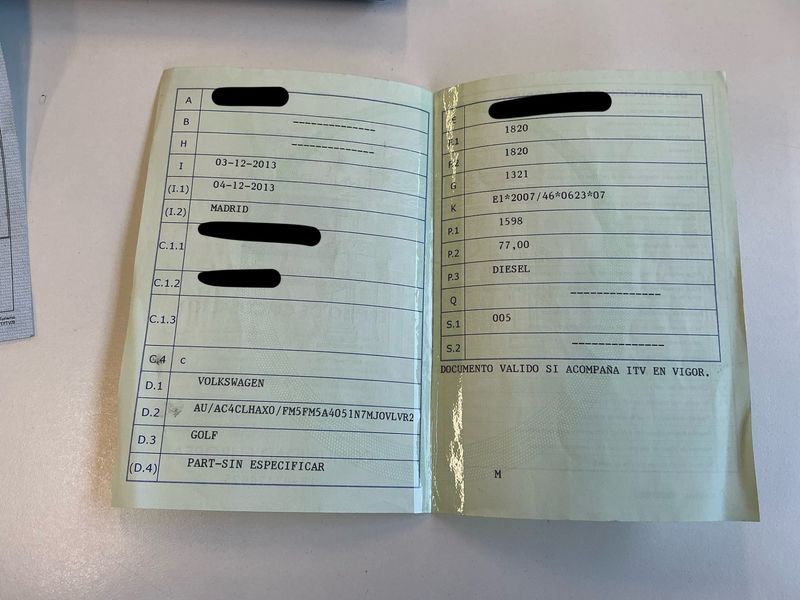 A
B --------------
H --------------
I 03-12-2013
(I.1) 04-12-2013
(I.2) MADRID
C.1.1
C.1.2
C.1.3
C.4 c
D.1 VOLKSWAGEN
D.2 AU/AC4CLHAX0/FM5FM5A4051N7MJOVLVR2
D.3 GOLF
(D.4) PART-SIN ESPECIFICAR
E
F.1 1820
F.2 1820
G 1321
K E1*2007/46*0623*07
P.1 1598
P.2 77,00
P.3 DIESEL
Q --------------
S.1 005
S.2 --------------
DOCUMENTO VALIDO SI ACOMPAÑA ITV EN VIGOR.
M